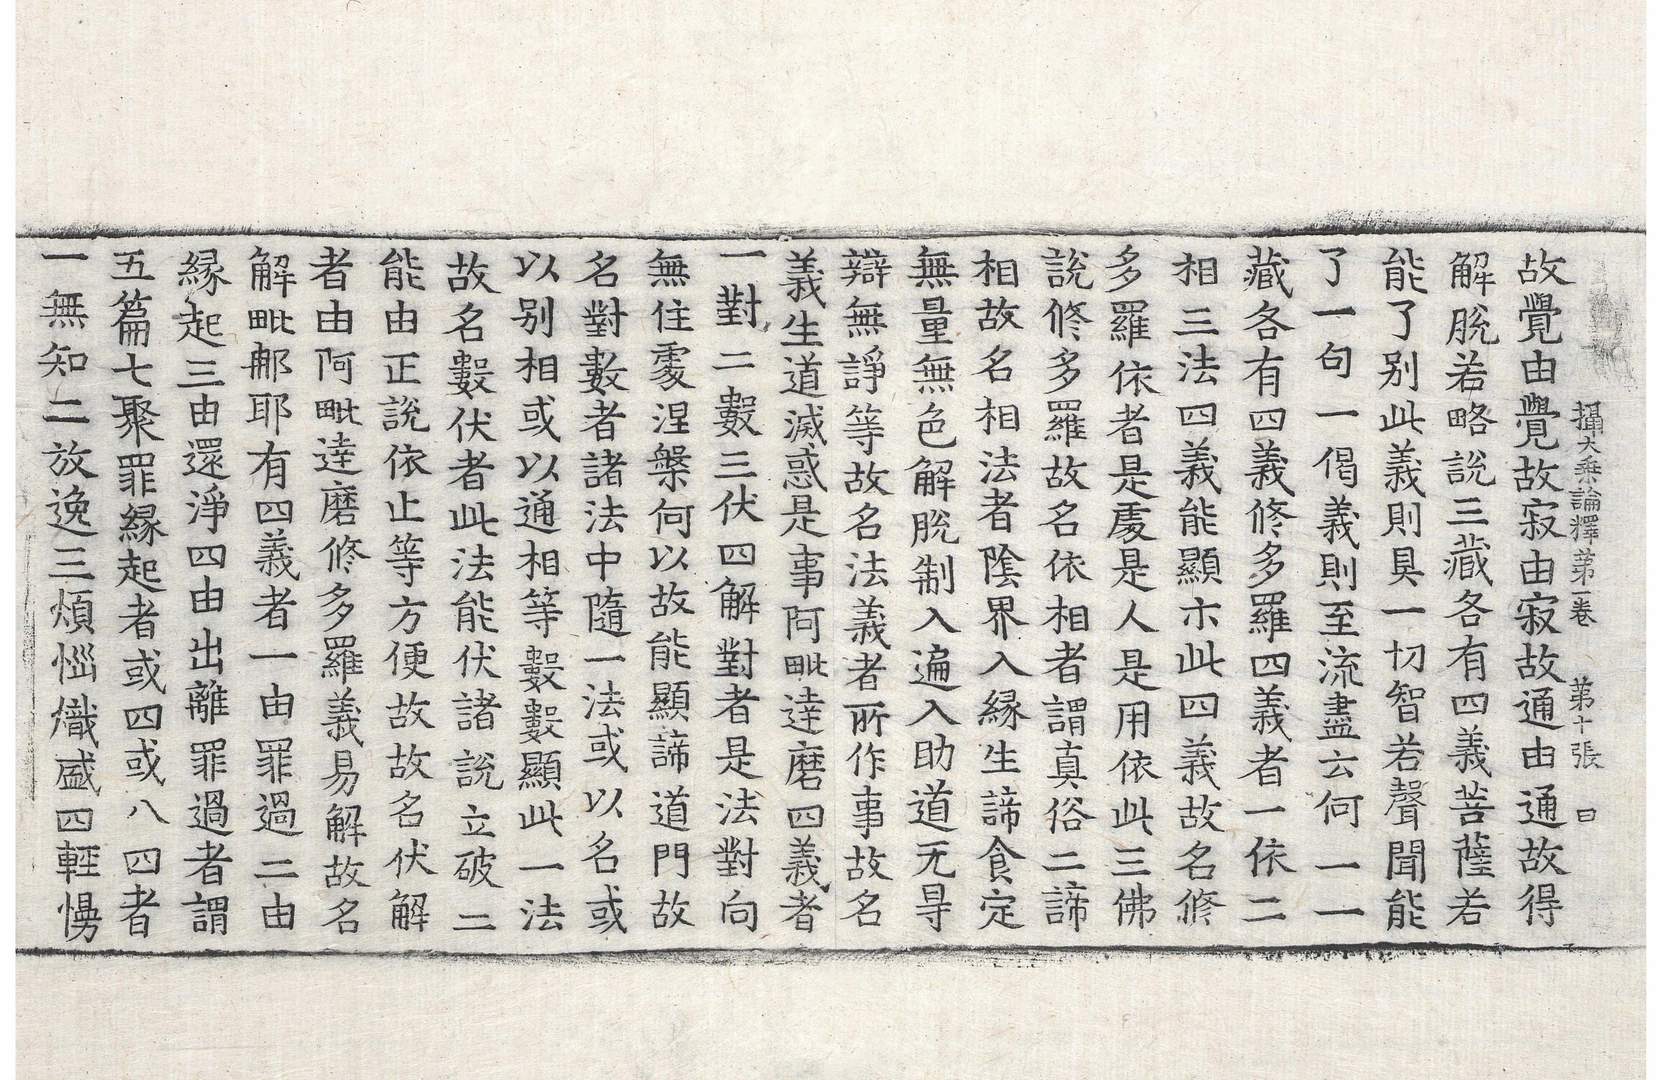 攝大乘論釋苐一卷　苐十張　日
故覺由覺故寂由寂故通由通故得
解脫若略說三藏各有四義菩薩若
能了別此義則具一切智若聲聞能
了一句一偈義則至流盡云何一一
藏各有四義修多羅四義者一依二
相三法四義能顯示此四義故名修
多羅依者是處是人是用依此三佛
說修多羅故名依相者謂真俗二諦
相故名相法者陰界入緣生諦食定
無量無色解脫制入遍入助道无㝵
辯無諍等故名法義者所作事故名
義生道滅惑是事阿毗達磨四義者
一對二數三伏四解對者是法對向
無住處涅槃何以故能顯諦道門故
名對數者諸法中隨一法或以名或
以別相或以通相等數數顯此一法
故名數伏者此法能伏諸說立破二
能由正說依止等方便故故名伏解
者由阿毗達磨修多羅義易解故名
解毗那耶有四義者一由罪過二由
緣起三由還淨四由出離罪過者謂
五篇七聚罪緣起者或四或八四者
一無知二放逸三煩惱熾盛四輕慢